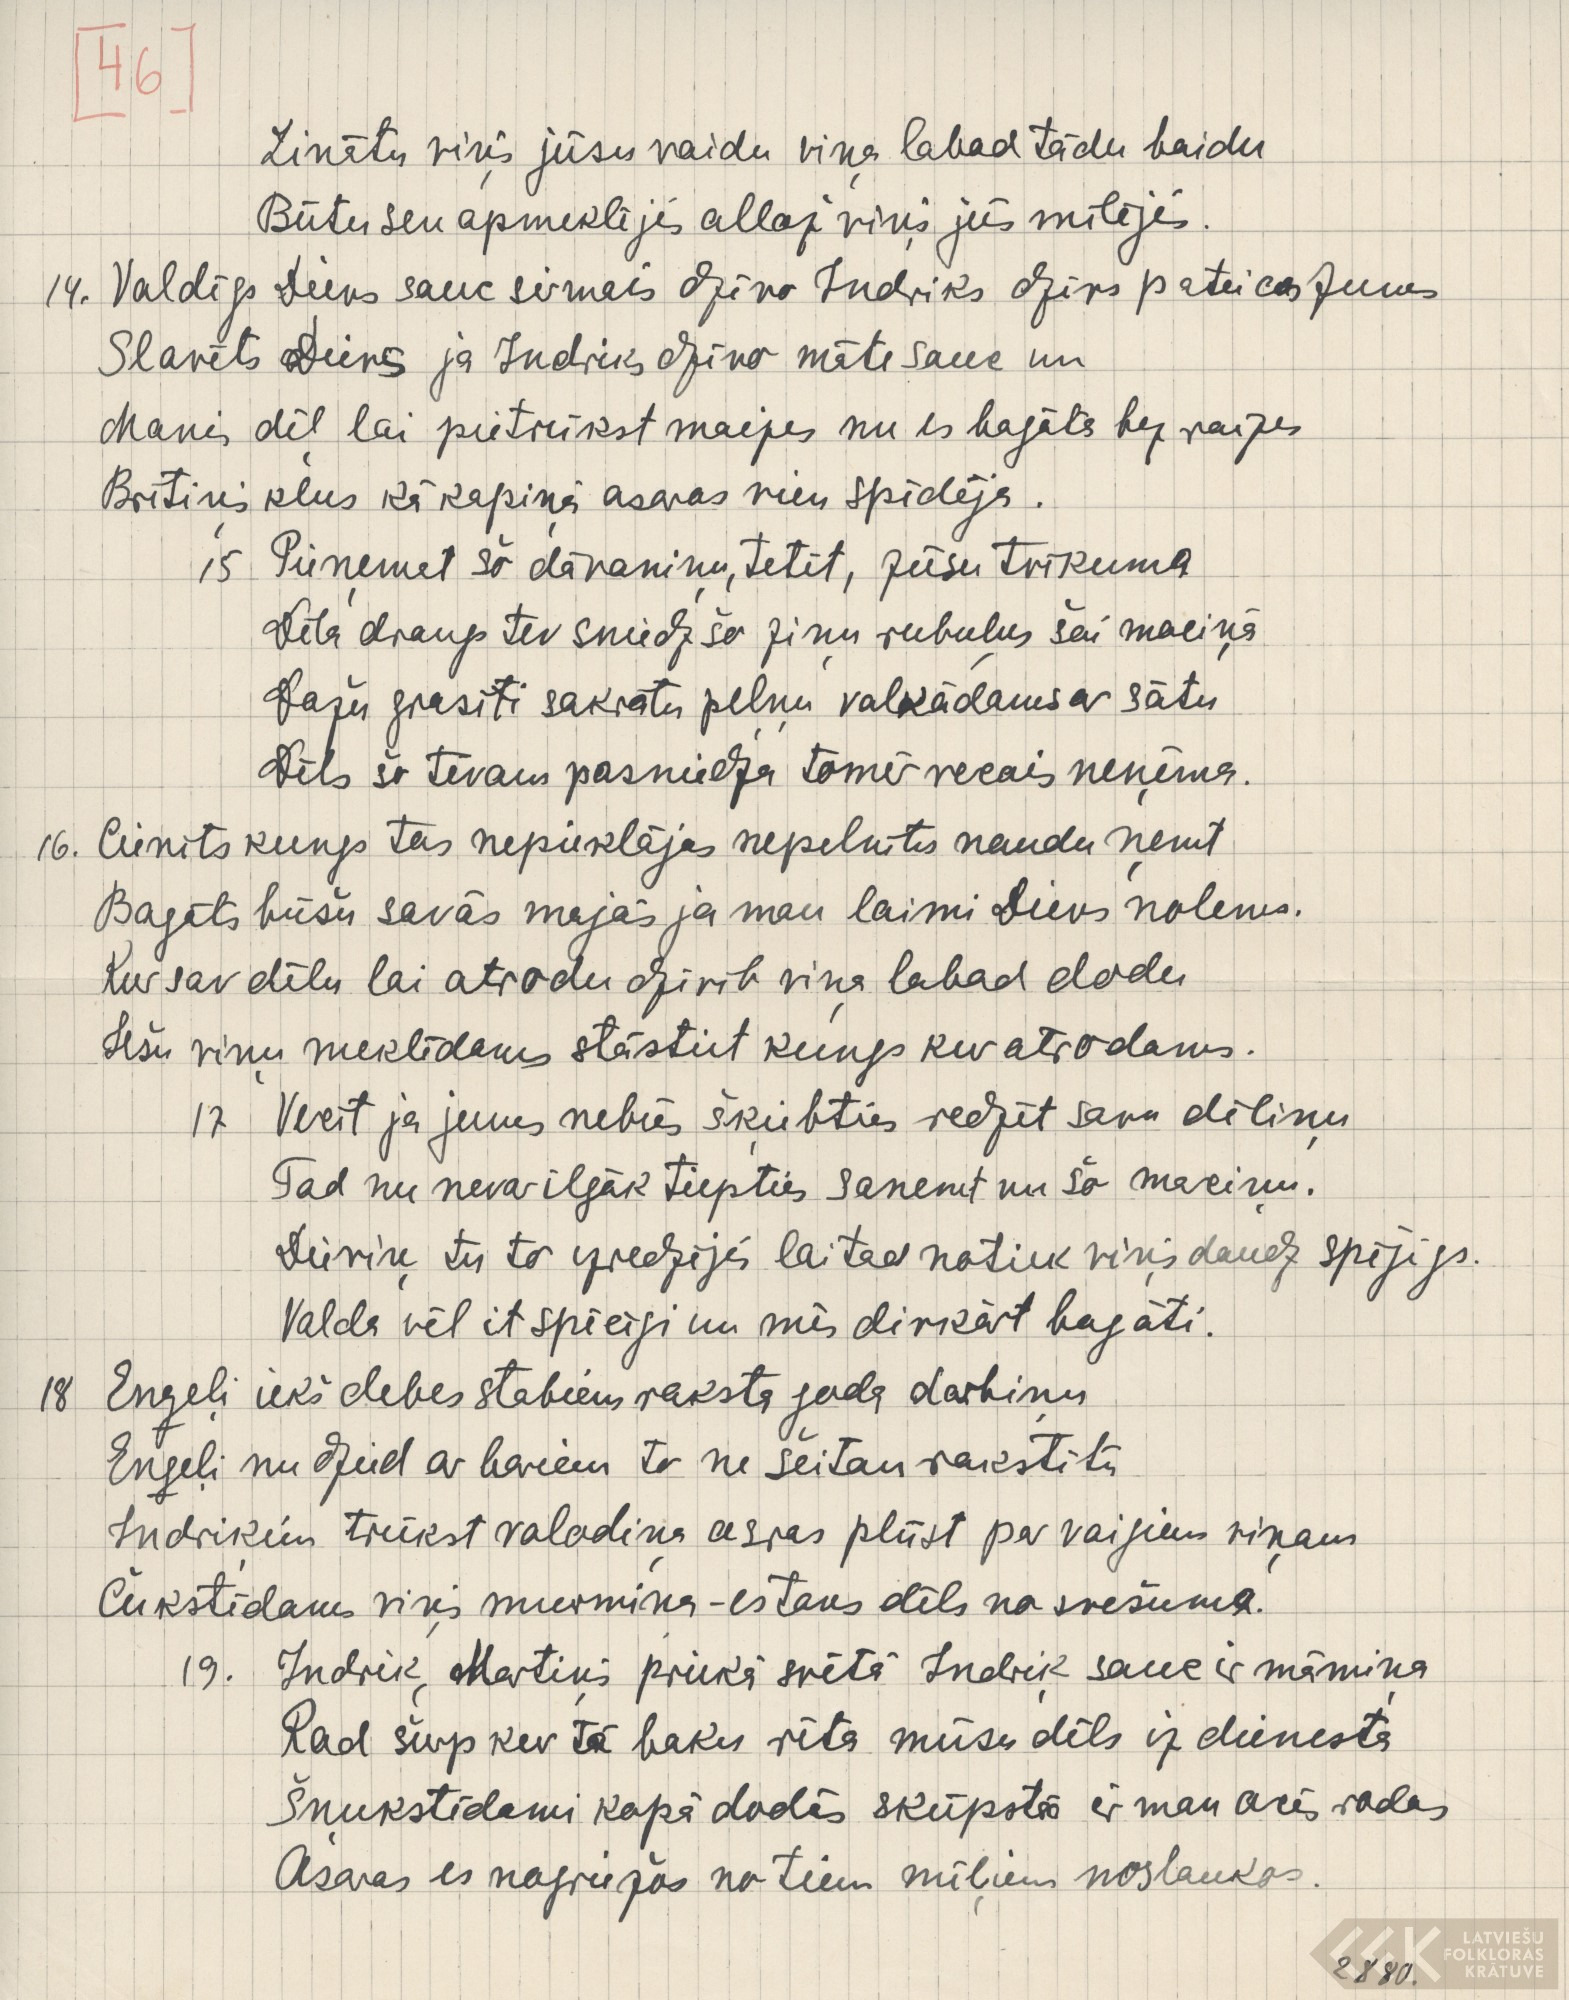 [46]
Zinātu viņš jūsu vaidu viņa labad tādu baidu
Būtu sen apmeklējis allaž viņš jūs mīlējis.
14. Valdīgs Dievs sauc sirmais dzīvo Indriķs dzīvs pateicos Jums
Slavēts Dievs ja Indriķs dzīvo māte sauc un
Manis dēļ lai pietrūkst maizes nu es bagāta bez raizes
Brītiņis klus kā kapiņā asaras vien spīdēja.
15 Pieņemat šo dāvaniņu, tētīt, Jūsu trūkumā
Dēla draugs tev sniedz šo ziņu rubuļus šai maciņā
Dažu grasīti sakrātu pelņu valkādams ar sātu
Dēls šo tēvam pasniedza tomēr vecais neņēma.
16. Cienīts kungs tas nepieklājas nepelnītu naudu ņemt
Bagāts būšu savās mājās ja man laimi Dievs nolems.
Kur sav dēlu lai atrodu dzīvīb viņa labad dodu
Iešu viņu meklēdams stāstiet kungs kur atrodams.
17 Vecīt ja jums nebūs šķiebties redzēt savu dēliņu
Tad nu nevar ilgāk tiepties saņemt nu šo maciņu.
Dieviņ, tu to izredzējis lai tad notiek viņš daudz spējīgs.
Valda vēl it spēcīgi un mēs divkārt bagāti.
18 Engeļi iekš debes stabiem raksta goda darbiņu
Engeļi nu dzied ar bariem to ne šeitan rakstītu
Indriķim trūkst valodiņa asras plūst par vaigiem viņam
Čukstēdams viņš murmina - es tavs dēls no svešuma.
19. Indriķ, Mārtiņš priekā svētā Indriķ sauc ir māmiņa
Rad šurp kur tā baku rēta mūsu dēls iz dienesta
Šņukstēdami kopā dodās skūpstās ir man acīs rodas
Asaras es nogriežos no tiem mīļiem noslaukos.
2880.
LATVIEŠU
FOLKLORAS
KRĀTUVE